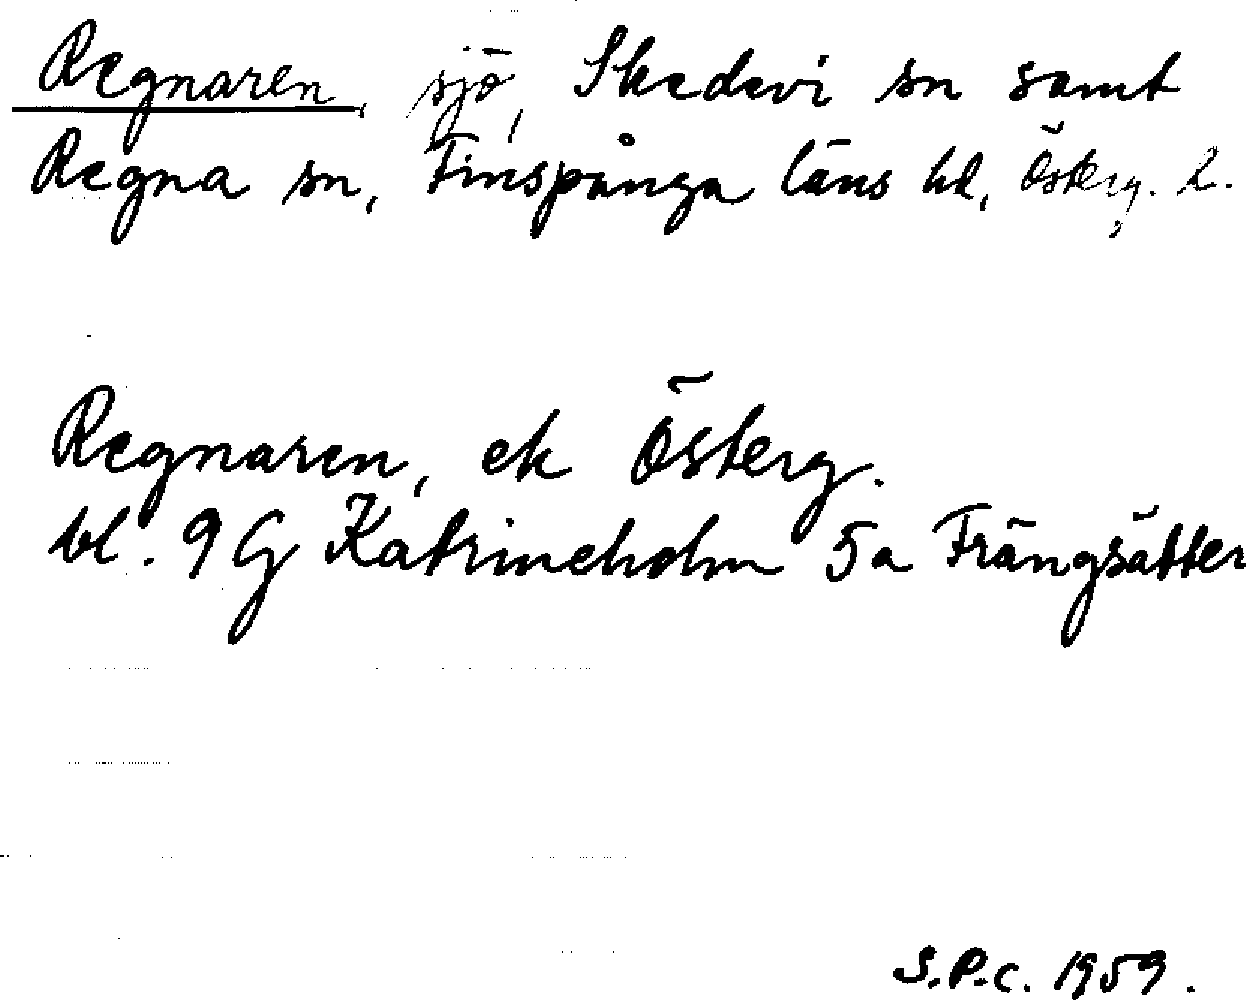 Regnaren, sjö, Skedevi sn samt
Regna sn, Finspånga läns hd, Österg. l.
Regnaren, ek Österg.
bl. 9G Katrineholm 5a Frängsätter
S.P.C. 1959.